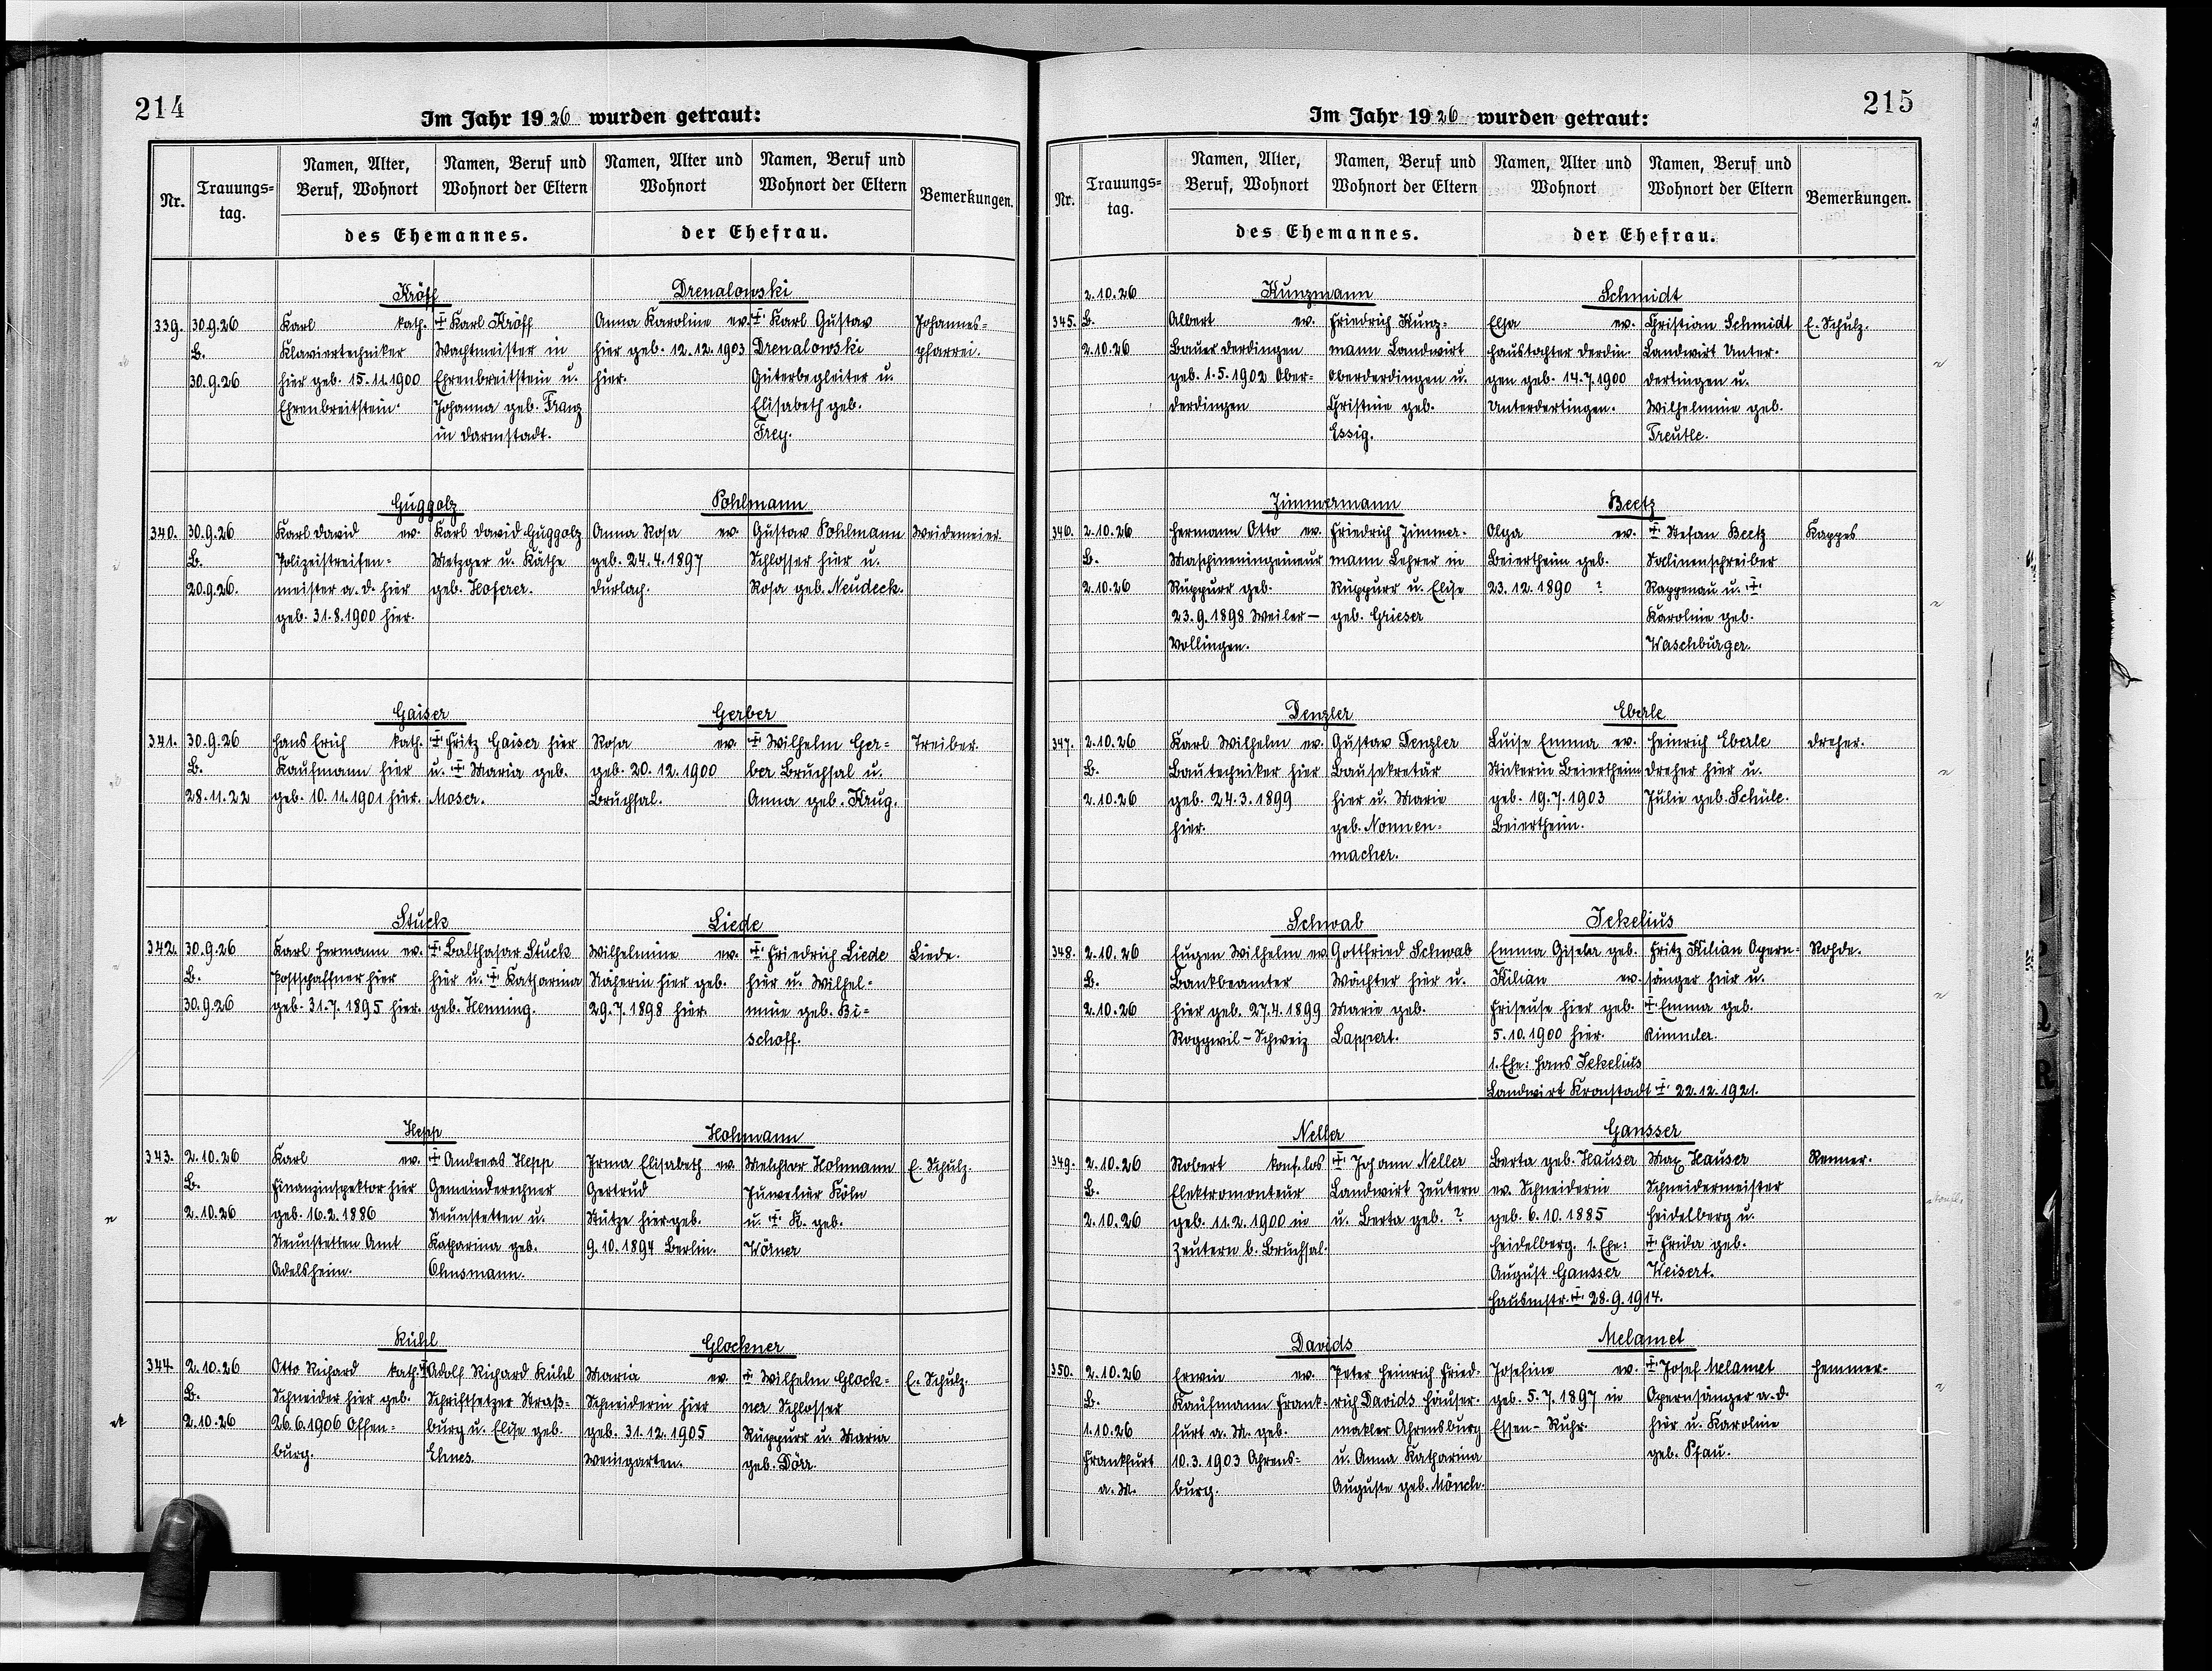 214
Im Jahr 1926 wurden getraut:
Nr.
Trauungs=
tag.
Namen, Alter,
Beruf, Wohnort
Namen, Beruf und
Wohnort der Eltern
des Ehemannes.
Namen, Alter und
Wohnort
Namen, Beruf und
Wohnort der Eltern
der Ehefrau.
Bemerkungen.
Kröff
Drenalowski
339.
30.9.26
B.
30.9.26
Karl kath.
Klaviertechniker
hier geb. 15.11.1900
Ehrenbreitstein.
‡ Karl Kröff
Wachtmeister in
Ehrenbreitstein u.
Johanna geb. Franz
in Darmstadt.
Anna Karoline ev.
hier geb. 12.12.1903
hier.
‡ Karl Gustav
Drenalowski
Güterbegleiter u.
Elisabeth geb.
Frey.
Johannes=
pfarrei.
Guggolz
Pohlmann
340.
30.9.26
B.
20.9.26.
Karl David ev.
Polizeistreifen=
meister a. d. hier
geb. 31.8.1900 hier.
Karl David Guggolz
Metzger u. Käthe
geb. Hoferer.
Anna Rosa ev.
geb. 24.4.1897
Durlach.
Gustav Pohlmann
Schlosser hier u.
Rosa geb. Neudeck.
Weidemeier.
Gaiser
Gerber
341.
30.9.26
B.
28.11.22
Hans Erich kath.
Kaufmann hier
geb. 10.11.1901 hier.
‡ Fritz Gaiser hier
u. ‡ Maria geb.
Moser.
Rosa ev.
geb. 20.12.1900
Bruchsal.
‡ Wilhelm Ger=
ber Bruchsal u.
Anna geb. Krug.
Treiber.
Stuck
Liede
342.
30.9.26
B.
30.9.26
Karl Hermann ev.
Postschaffner hier
geb. 31.7.1895 hier.
‡ Balthasar Stuck
hier u. ‡ Katharina
geb. Henning.
Wilhelmine ev.
Näherin hier geb.
29.7.1898 hier.
‡ Friedrich Liede
hier u. Wilhel=
mine geb. Bi=
schoff.
Liede.
Hepp
Hohmann
343.
2.10.26
B.
2.10.26
Karl ev.
Finanzinspektor hier
geb. 16.2.1886
Neunstetten Amt
Adelsheim.
‡ Andreas Hepp
Gemeinderechner
Neunstetten u.
Katharina geb.
Ohnsmann.
Irma Elisabeth ev.
Gertrud
Stütze hier geb.
9.10.1894 Berlin.
Melchior Hohmann
Juwelier Köln
u. ‡ K. geb.
Wörner
E. Schulz.
Kühl
Glockner
344
2.10.26
B.
2.10.26
Otto Richard kath.
Schneider hier geb.
26.6.1906 Offen=
burg.
‡ Adolf Richard Kühl
Schriftsetzer Straß=
burg u. Elise geb.
Ehnes
Maria ev.
Schneiderin hier
geb. 31.12.1905
Weingarten.
‡ Wilhelm Glock=
ner Schlosser
Rüppurr u. Maria
geb. Dörr.
E. Schulz.
215
Im Jahr 1926 wurden getraut:
Nr.
Trauungs=
tag.
Namen, Alter,
Beruf, Wohnort
Namen, Beruf und
Wohnort der Eltern
des Ehemannes.
Namen, Alter und
Wohnort
Namen, Beruf und
Wohnort der Eltern
der Ehefrau.
Bemerkungen.
Kunzmann
Schmidt
345.
2.10.26
B.
2.10.26
Albert ev.
Bauer Derdingen
geb. 1.5.1902 Ober=
derdingen
Friedrich Kunz=
mann Landwirt
Oberderdingen u.
Christine geb.
Essig.
Elsa ev.
Haustochter Derdin=
gen geb. 14.7.1900
Unterdertingen.
Christian Schmidt
Landwirt Unter=
dertingen u.
Wilhelmine geb.
Treutle.
E. Schulz.
Zimmermann
Beetz
346.
2.10.26
B.
2.10.26
Hermann Otto ev.
Maschineningeineur
Rüppurr geb.
23.9.1898 Weiler-
Vollingen.
Friedrich Zimmer=
mann Lehrer in
Rüppurr u. Elise
geb. Grieser
Olga ev.
Beiertheim geb.
23.12.1890 ?
‡ Stefan Beetz
Salinenschreiber
Rappenau u. ‡
Karoline geb.
Waschburger.
Kappes
Denzler
Eberle
347.
2.10.26
B.
2.10.26
Karl Wilhelm ev.
Bautechniker hier
geb. 24.3.1899
hier.
Gustav Denzler
Bausekretär
hier u. Marie
geb. Nonnen=
macher.
Luise Emma ev.
Stickerin Beiertheim
geb. 19.7.1903
Beiertheim.
Heinrich Eberle
Dreher hier u.
Julie geb. Schüle.
Dreher.
Schwab
Jekelius
348.
2.10.26
B.
2.10.26
Eugen Wilhelm ev.
Bankbeamter
hier geb. 27.4.1899
Roggwil-Schweiz
Gottfried Schwab
Wächter hier u.
Marie geb.
Lappert.
Emma Gisela geb.
Kilian ev.
Friseuse hier geb.
5.10.1900 hier.
1. Ehe: Hans Jekelius
Landwirt Kronstadt ‡ 22.12.1921.
Fritz Kilian Opern=
sänger hier u.
‡ Emma geb.
Rohde.
Neller
Gansser
349.
2.10.26
B.
2.10.26
Robert konf.los
Elektromonteur
geb. 11.2.1900 in
Zeutern b. Bruchsal.
‡ Johann Neller
Landwirt Zeutern
u. Berta geb. ?
Berta geb. Hauser
ev. Schneiderin
geb. 6.10.1885
Heidelberg. 1. Ehe:
August Gansser
Hausmstr. ‡ 28.9.1914.
Max Hauser
Schneidermeister
Heidelberg u.
‡ Frida geb.
Weisert.
Renner.
Davids
Melamet
350.
2.10.26
B.
1.10.26
Frankfurt
a. M.
Erwin ev.
Kaufmann Frank=
furt a. M. geb.
10.3.1903 Ahrens=
burg.
Peter Heinrich Fried=
rich Davids Häuser=
makler Ahrensburg
u. Anna Katharina
Auguste geb. Mönch.
Josefine ev.
geb. 5.7.1897 in
Essen-Ruhr.
‡ Josef Melamet
Opernsänger a. d.
hier u. Karoline
geb. Pfau.
Hemmer.